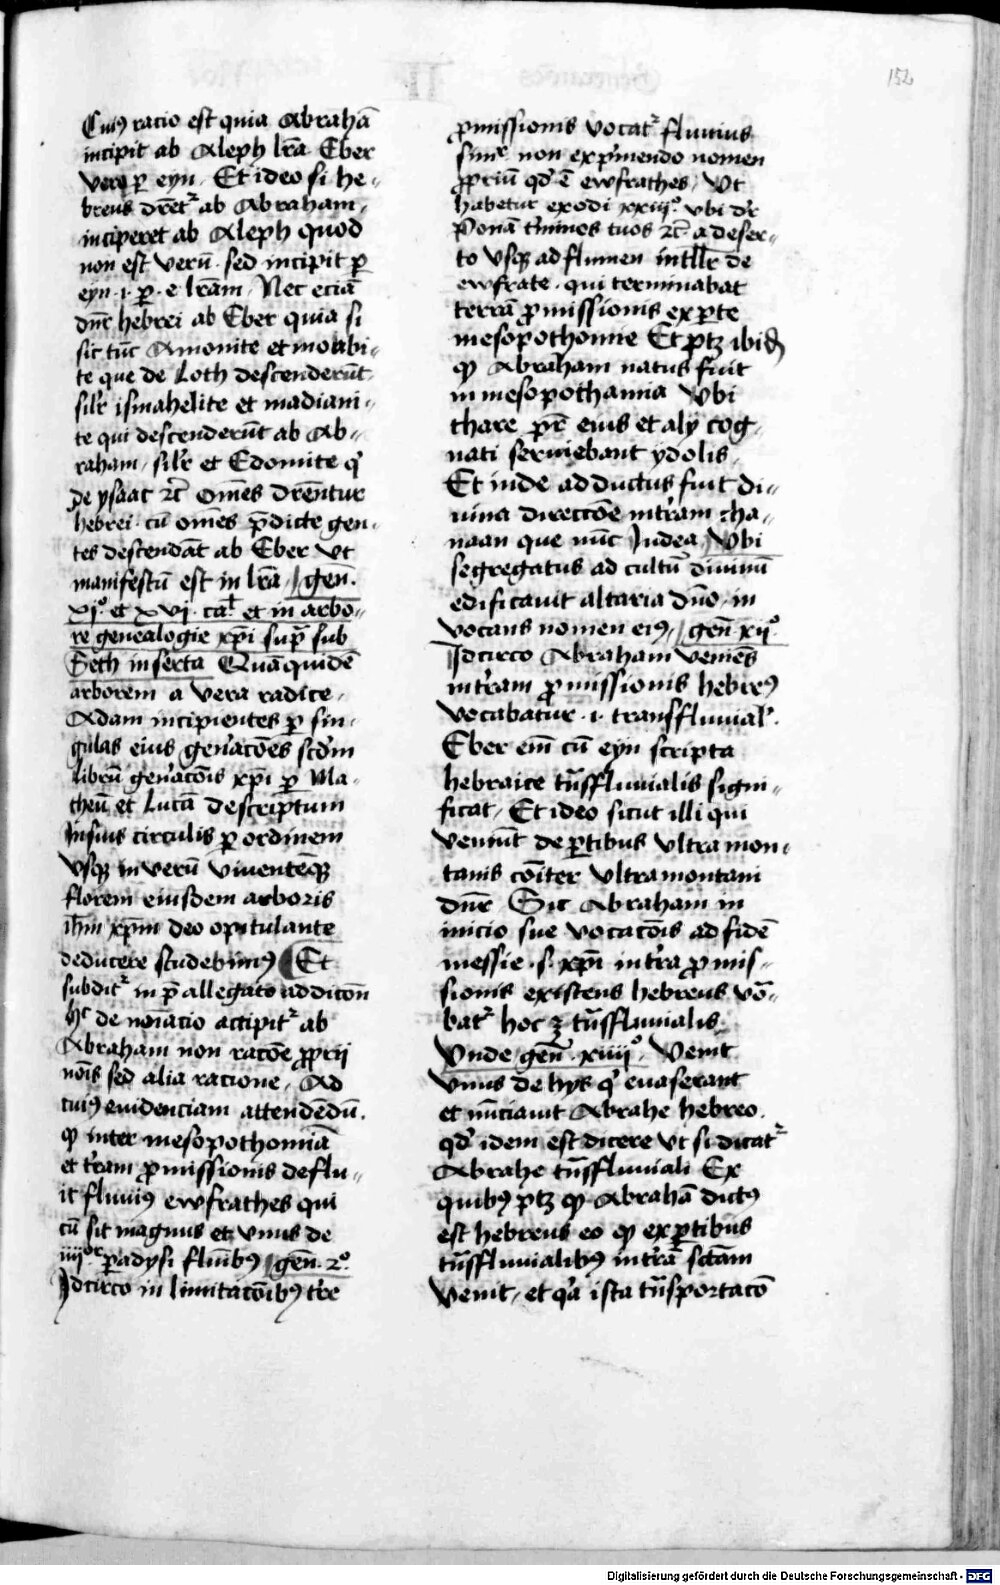 152
Cuiꝰ racio est quia Abrahã
incipit ab Aleph lr̃a Eber
vero ꝑ eyn. Et ideo si he-
breus dr̃et᷑ ab Abraham,
inciperet ab Aleph quod
non est verũ. sed incipit ꝑ
eyn .i. ꝑ .e. lr̃am, Nec eciã
dñr hebrei ab Eber quia si
sic tũc Amonite et moabi-
te que de Loth descenderũt
sil'r ismahelite et madiani-
te qui descenderũt ab Ab-
raham, sil'r et Edomite q'
de ysaac ⁊c̃ Om̃es dr̃entur
hebrei. cũ om̃es p̃dicte gen-
tes descendãt ab Eber vt
manifestũ est in lr̃a, gen̄.
xjº et xvj. ca. et in arbo-
re genealogie xp̃i sup̃ sub
Seth inserta Quã quidẽ
arborem a vera radice,
Adam incipientes ꝑ sin-
gulas eius gen'acões scd'm
librũ gen'acõis xp̃i ꝑ Ma-
theũ et Lucã descriptum
Insius circulis ꝑ ordinem
vsqꝫ in verũ viuentẽqꝫ
florem eiusdem arboris
ih̃m xp̃m deo opitulante
deducere studebimꝰ Et
subdit᷑ in p̃allegato addicõn
hec de noĩacio accipit᷑ ab
Abraham non racõe ꝓprij
nõis sed alia racione, Ad
cuiꝰ euidenciam attendẽdũ.
qꝫ inter mesopothomiã
et t'ram ꝓmissionis deflu-
it fluuiꝰ ewfrathes qui
cũ sit magnus et vnus de
iiijºʳ ꝑadysi flũibꝰ gen̄. 2º.
Idcirco in limitacõibꝰ t're
ꝓmissionis vocat᷑ fluuius
simr non exp'mendo nomen
ꝓpriũ qd' ẽ ewfrathes, Vt
habetur exodi xxiijº. vbi dr̃
Ponã t'minos tuos ⁊c̃ a deser-
to vsqꝫ ad flumen intllr̃ de
ewfrate. qui terminabat
terrã ꝓmissionis ex ꝑte
mesopothomie Et ptꝫ ibid̃
qꝫ Abraham natus fuit
in mesopothamia Vbi
thare pr̃ eius et alij cog-
nati seruiebant ydolis,
Et inde adductus fuit di-
uina direccõe in t'ram cha-
naan que nũc Iudea, Vbi
segregatus ad cultũ diuinũ
edificauit altaria dño, in
vocans nomen eiꝰ, gen̄ xijº.
Idcirco Abraham veniẽs
in t'ram ꝓmissionis hebreꝰ
vocabatur .i. transfluuial'.
Eber em̃ cũ eyn scripta
hebraice tũsfluuialis signi-
ficat, Et ideo sicut illi qui
veniũt de ꝑtibus vltra mon-
tanis cõiter vltramontani
dñr Sic Abraham in
inicio sue vocacõis ad fidẽ
messie .s. xp̃i in t'ra ꝓmis-
sionis existens hebreus vo-
bat᷑ hoc ꝫ tũsfluuialis.
Vnde gen̄. xiiijº. Venit
vnus de hijs q' euaserant
et nũciauit Abrahe hebreo.
qd' idem est dicere vt si dicat᷑
Abrahe tũsfluuiali Ex
quibꝰ ptꝫ qꝫ Abrahã dictꝰ
est hebreus eo qꝫ ex ꝑtibus
tũsfluuialibꝰ in t'rã sc̃am
venit, et q'a ista tũsportacõ
Digitalisierung gefördert durch die Deutsche Forschungsgemeinschaft - DFG